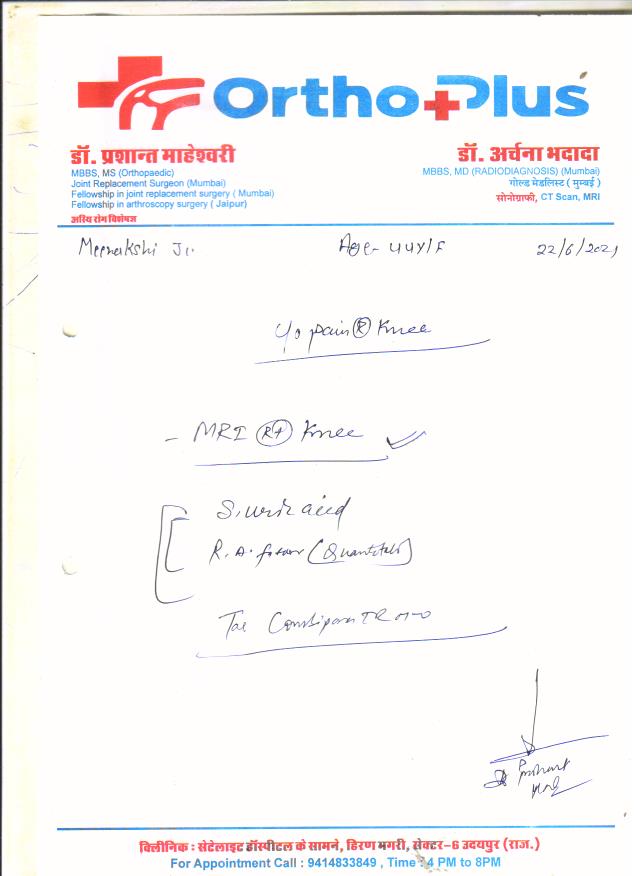 Ortho Plus
डॉ. प्रशान्त माहेश्वरी
MBBS, MS (Orthopaedic)
Joint Replacement Surgeon (Mumbai)
Fellowship in joint replacement surgery ( Mumbai)
Fellowship in arthroscopy surgery ( Jaipur)
अस्थि रोग विशेषज्ञ
डॉ. अर्चना भदादा
MBBS, MD (RADIODIAGNOSIS) (Mumbai)
गोल्ड मेडलिस्ट ( मुम्बई )
सोनोग्राफी, CT Scan, MRI
Meenakshi Ji. Age- 44Y/F 22/6/2021
c/o pain (R) Knee
- MRI (Rt) Knee
S. uric acid
R. A. factor (Quantitative)
क्लिनिक : सेटेलाइट हॉस्पीटल के सामने, हिरण मगरी, सेक्टर-6 उदयपुर (राज.)
For Appointment Call : 9414833849 , Time : 4 PM to 8PM